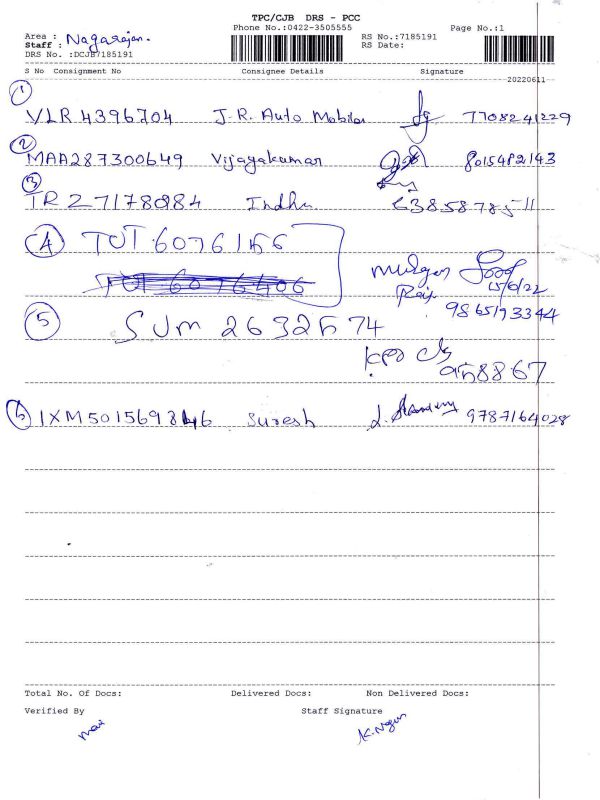 TPC/CJB DRS - PCC
Phone No.:0422-3505555 Page No.:1
Area : Nagarajan. RS No.:7185191
Staff : RS Date:
DRS No. :DCJB7185191
S No Consignment No Consignee Details Signature
20220611
1
VLR 4396704 J.R. Auto Mobiles 7708241229
2
MAA287300649 Vijayakumar 8015482143
3
TR 27178984 Indhu 6385878511
4 TUT 6076166
TUT 6076406
Murugan
Raj 15/6/22
9865193344
5 SUM 2632574
958867
6 IXM501569846 Suresh 9787164028
Total No. Of Docs: Delivered Docs: Non Delivered Docs:
Verified By Staff Signature